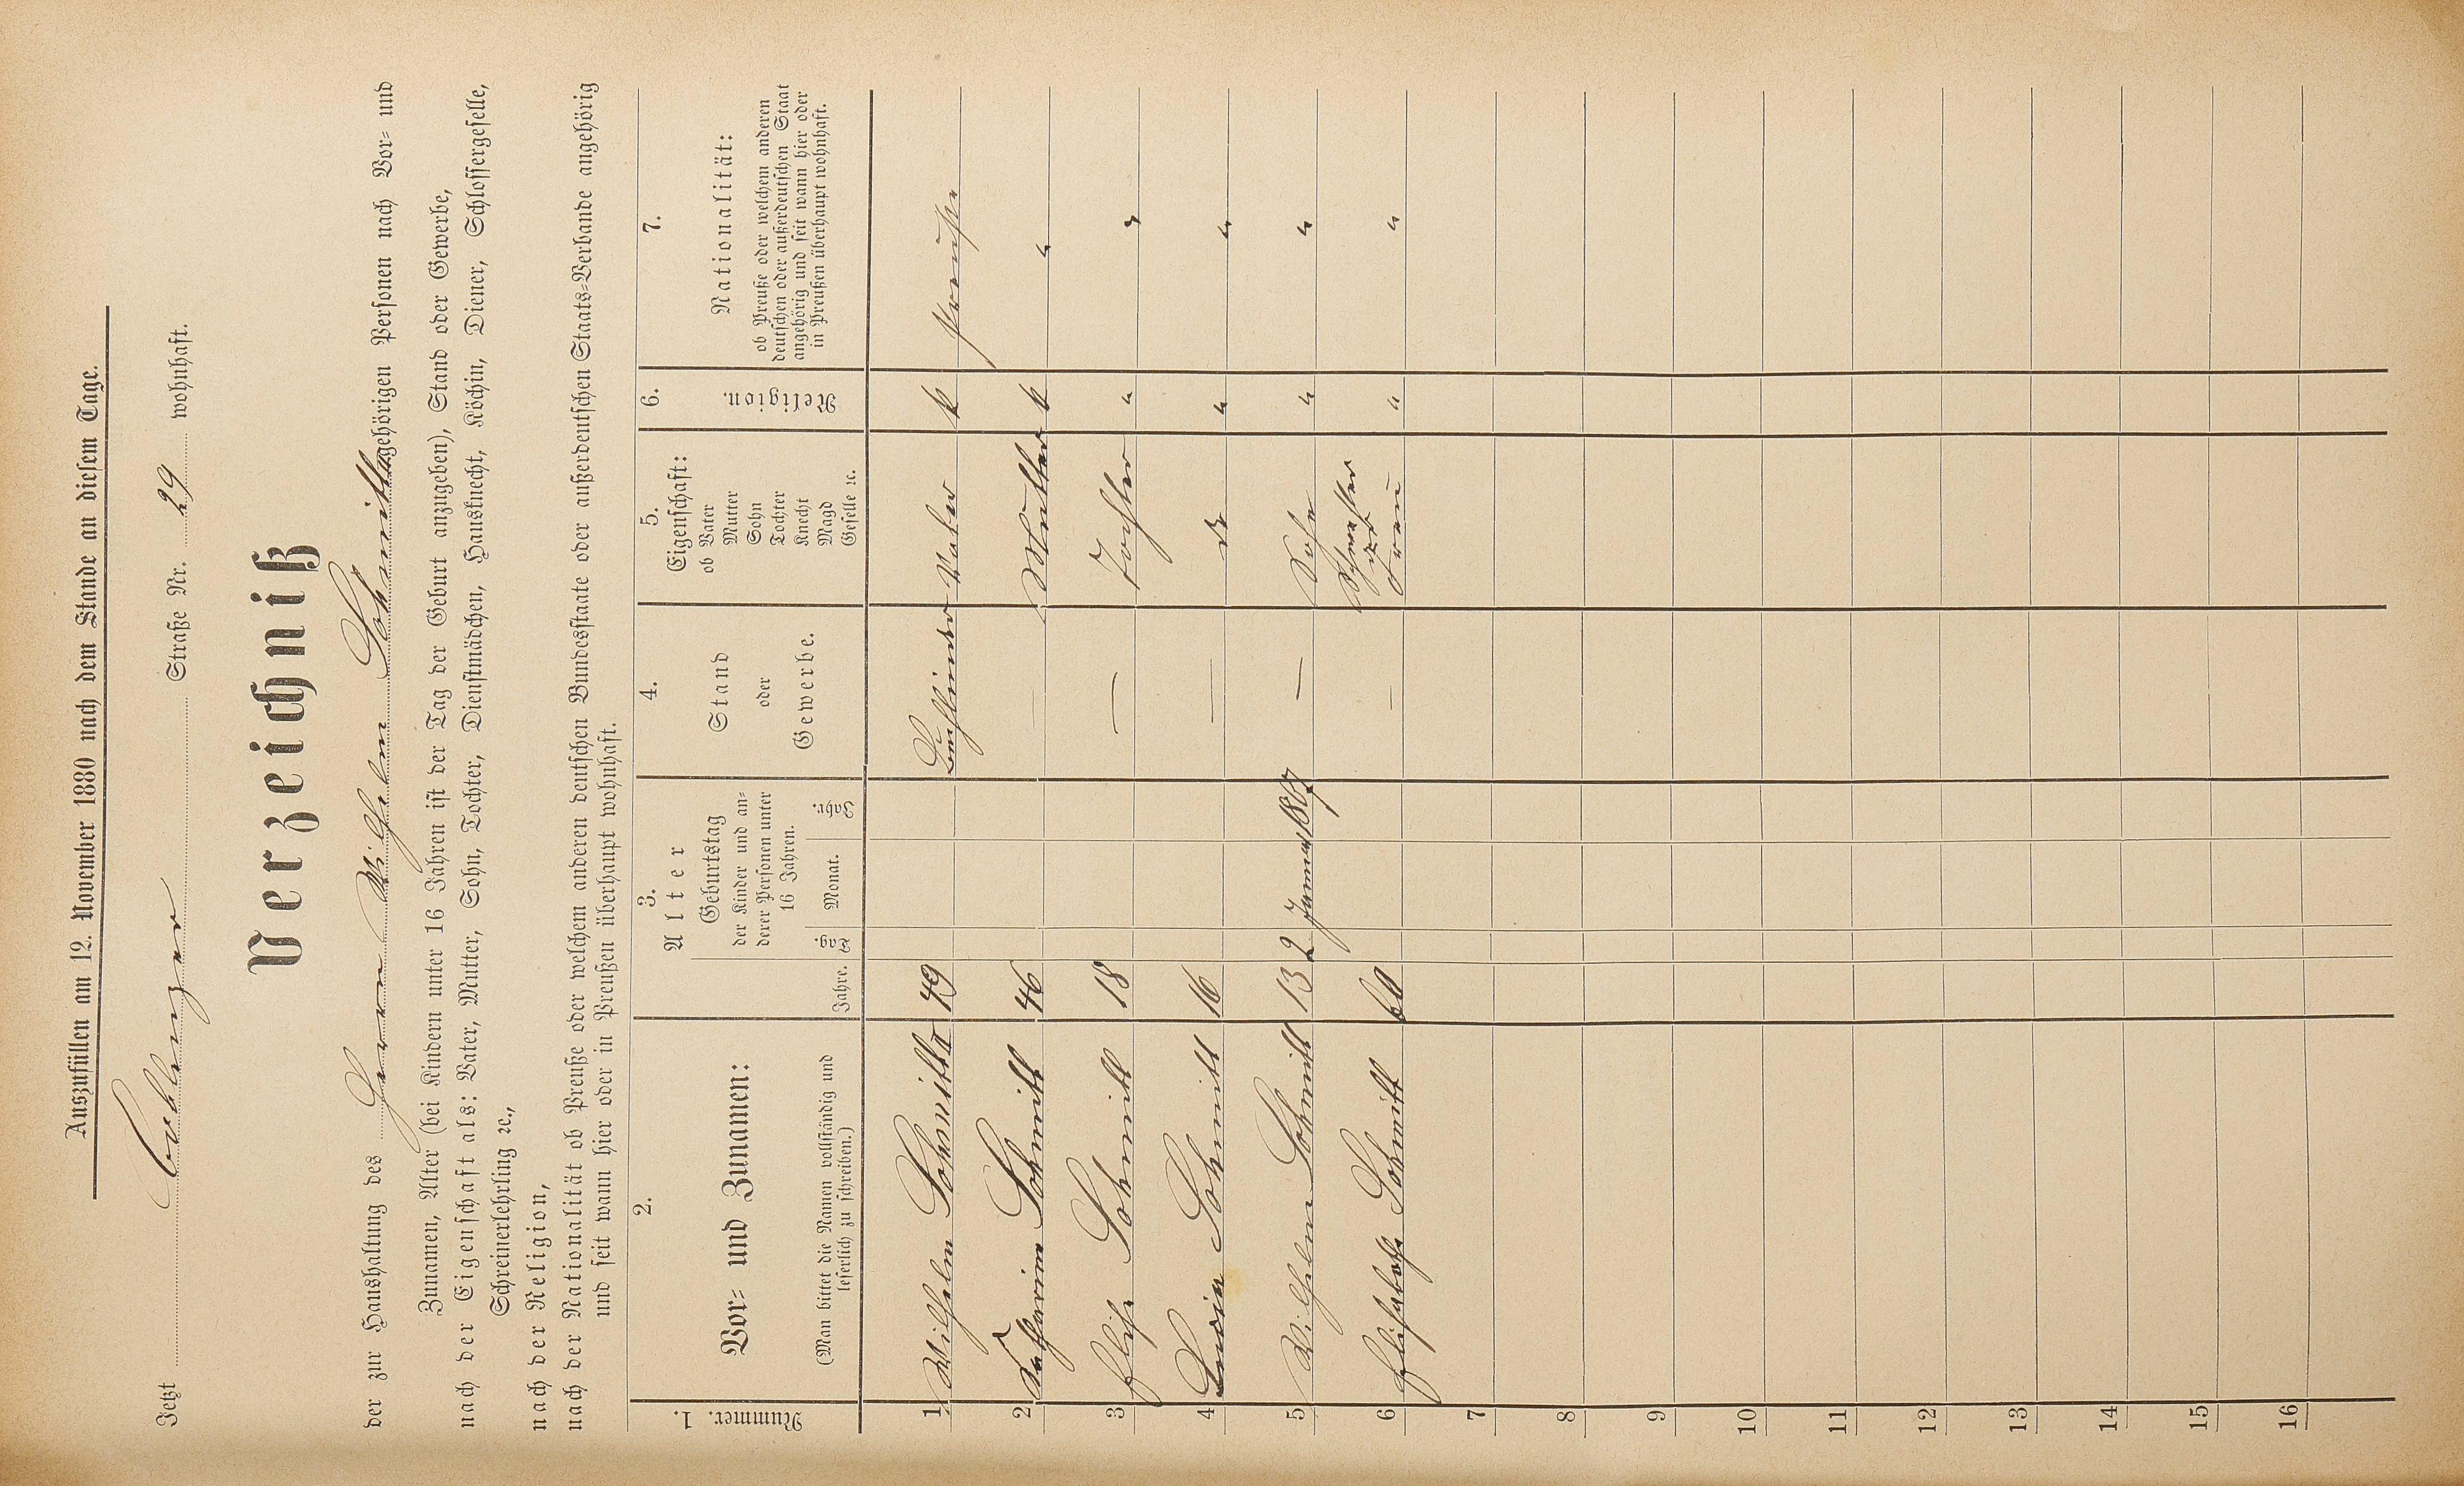 Auszufüllen am 12. November 1880 nach dem Stande an diesem Tage.
Jetzt Coblenzer Straße Nr. 29 wohnhaft.
Verzeichniß
der zur Haushaltung des Herrn Wilhelm Schmitt gehörigen Personen nach Vor- und
Zunamen, Alter (bei Kindern unter 16 Jahren ist der Tag der Geburt anzugeben), Stand oder Gewerbe,
nach der Eigenschaft als: Vater, Mutter, Sohn, Tochter, Dienstmädchen, Hausknecht, Köchin, Diener, Schlossergeselle,
Schreinerlehrling ꝛc.,
nach der Religion,
nach der Nationalität ob Preuße oder welchem anderen deutschen Bundesstaate oder außerdeutschen Staats-Verbande angehörig
und seit wann hier oder in Preußen überhaupt wohnhaft.
1. Nummer.
2. Vor- und Zunamen:
(Man bittet die Namen vollständig und
leserlich zu schreiben.)
3. Alter
Jahre.
Geburtstag
der Kinder und an-
derer Personen unter
16 Jahren.
Tag. Monat. Jahr.
4. Stand
oder
Gewerbe.
5. Eigenschaft:
ob Vater
Mutter
Sohn
Tochter
Knecht
Magd
Geselle ꝛc.
6. Religion.
7. Nationalität:
ob Preuße oder welchem anderen
deutschen oder außerdeutschen Staat
angehörig und seit wann hier oder
in Preußen überhaupt wohnhaft.
1 Wilhelm Schmitt 49 Vater k Preuße
2 Katharina Schmitt 46 — Mutter k "
3 Elise Schmitt 18 — Tochter " "
4 Lucia Schmitt 16 — d " "
5 Wilhelm Schmitt 13 2 Januar 1867 — Sohn " "
6 Elisabeth Schmitt 60 — Schwester der Frau " "
7
8
9
10
11
12
13
14
15
16